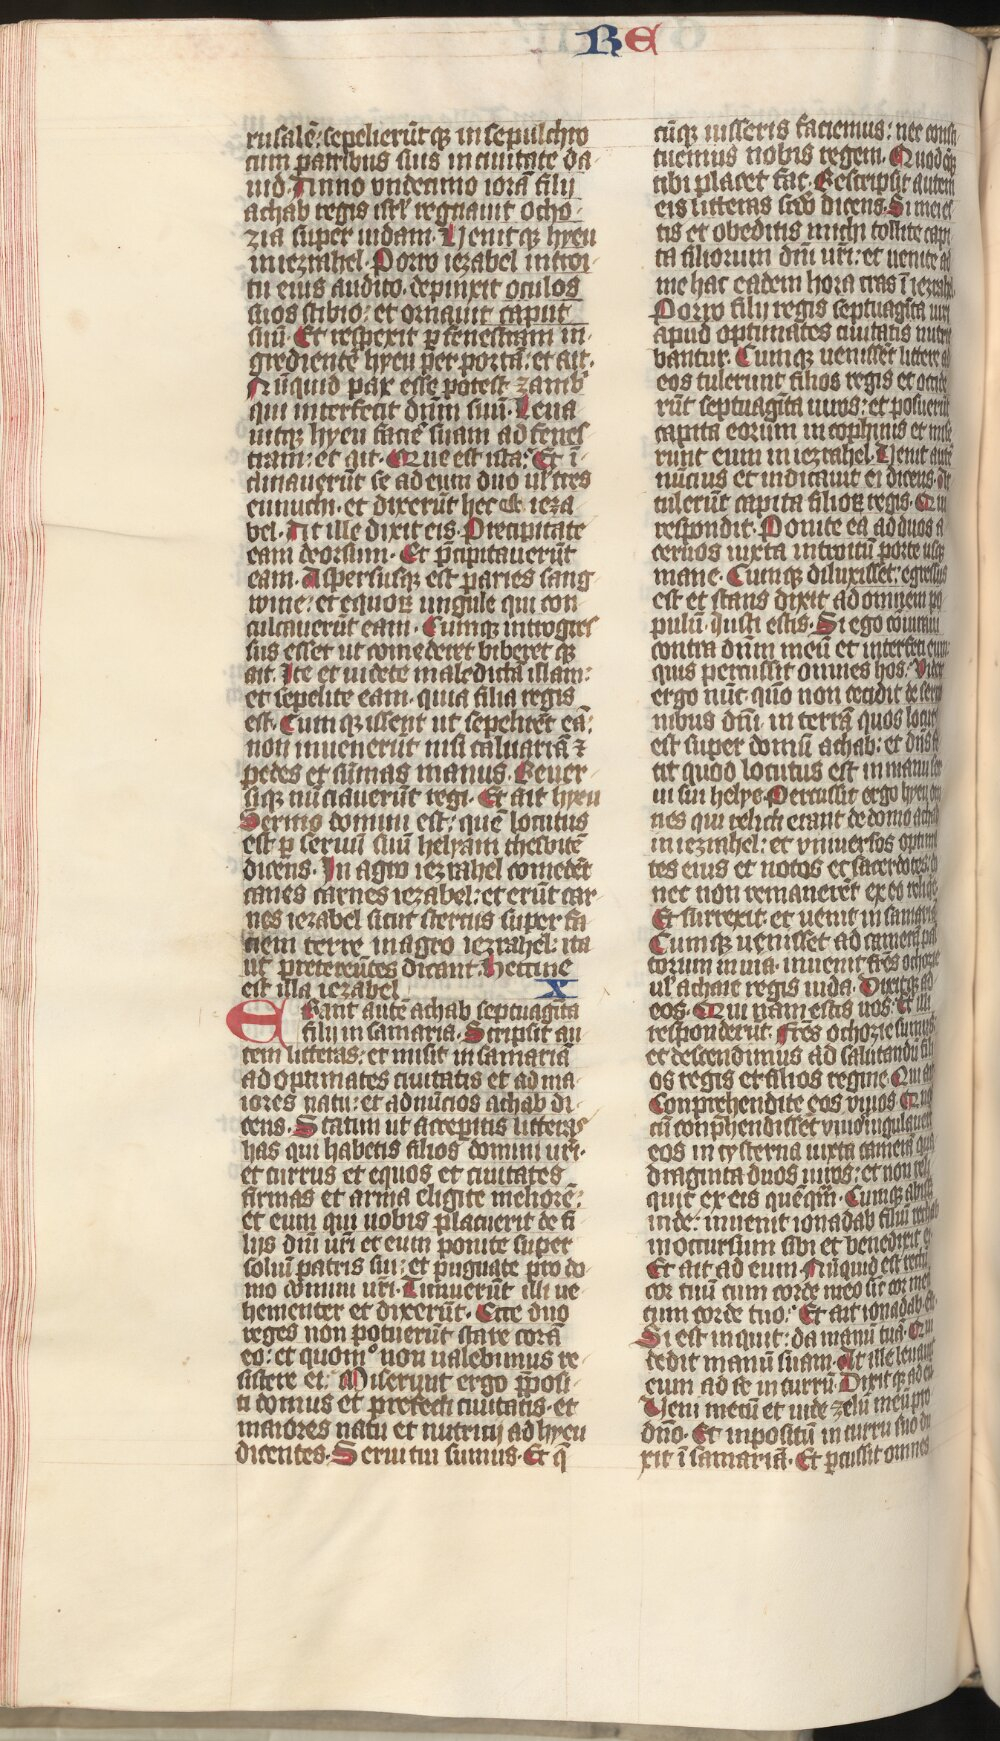 RE
rusalē: sepelierūtqꝫ in sepulchro
cum patribus suis in ciuitate da
uid. Anno vndecimo iorā filij
achab regis isrl' regnauit ocho
zia super iudam. Uenitqꝫ hyeu
in iezrahel. Porro iezabel introi
tu eius audito. depinxit oculos
suos stibio: et ornauit caput
suū. Et respexit ꝑ fenestram in
gredientē hyeu per portā: et ait.
Nūquid pax esse potest zambri
qui interfecit dūm suū. Leua
uitqꝫ hyeu faciē suam ad fenes
tram: et ait. Que est ista? Et ī
clinauerūt se ad eum duo ul' tres
eunuchi. et dixerūt hec est ieza
bel. At ille dixit eis. Precipitate
eam deorsum. Et p̄cipitauerūt
eam. Aspersusqꝫ est paries sang
wine: et equoꝝ ungule qui con
culcauerūt eam. Cumqꝫ introgres
sus esset ut comederet biberet qꝫ
ait. Ite et uidete maledictā illam:
et sepelite eam. quia filia regis
est. Cum qꝫ issent ut sepelirēt eā:
non inuenerūt nisi caluariā ⁊
pedes et sūmas manus. Reuer
siqꝫ nūciauerūt regi. Et ait hyeu
Sermo domini est: quē locutus
est ꝑ seruū suū helyam thesbitē
dicens. In agro iezrahel comedēt
canes carnes iezabel: et erūt car
nes iezabel sicut stercus super fa
ciem terre in agro iezrahel: ita
ut pretereūtes dicant. Heccine
est illa iezabel X
Erant autē achab septuagīta
filij in samaria. Scripsit au
tem litteras: et misit in samariā
ad optimates ciuitatis et ad ma
iores natu: et ad nūcios achab di
cens. Statim ut acceperitis litteras
has qui habetis filios domini uri.
et currus et equos et ciuitates
firmas et arma eligite meliorē:
et eum qui uobis placuerit de fi
lijs dn̄i uri et eum ponite super
soliū patris sui: et pugnate pro do
mo domini uri. Timuerūt illi ue
hementer et dixerūt. Ecce duo
reges non potuerūt stare corā
eo: et quomº non ualebimus re
sistere ei. Miserunt ergo p̄posi
ti domus et prefecti ciuitatis. et
maiores natu et nutricij ad hyeu
dicentes. Serui tui sumus. Et q̄
cūqꝫ iusseris faciemus: nec consti
tuemus nobis regem. Quodcūqꝫ
tibi placet fac. Rescripsit autem
eis litteras scdo dicens. Si mei es
tis et obeditis michi tollite capi
ta filiorum dn̄i uri: et uenite ad
me hac eadem hora cras ī iezrahel.
Porro filij regis septuagīta uiri
apud optimates ciuitatis nutrie
bantur. Cumqꝫ uenissēt littere ad
eos tulerunt filios regis et occide
rūt septuagīta uiros: et posuerūt
capita eorum in cophinis et mise
runt eum in iezrahel. Uenit autē
nūcius et indicauit ei dicens. At
tulerūt capita filioꝝ regis. Qui
respondit. Ponite ea ad duos a
ceruos iuxta introitū porte usqꝫ
mane. Cumqꝫ diluxisset: egressus
est et stans dixit ad omnem po
pulū. iusti estis. Si ego cōiuraui
contra dūm meū et interfeci eum:
quis percussit omnes hos? Videte
ergo nūc quō non cecidit de sermo
nibus dn̄i in terrā quos locutus
est super domū achab: et dn̄s fe
cit quod locutus est in manu ser
ui sui helye. Percussit ergo hyeu om
nes qui relicti erant de domo achab
in iezrahel: et vniuersos optima
tes eius et notos et sacerdotes: do
nec non remanerēt ex eo reliqe.
Et surrexit: et uenit in samariā.
Cumqꝫ uenisset ad camerā pas
torum in uia. inuenit fr̄es ochozie
ul' achaie regis iuda. Dixitqꝫ ad
eos. Qui nam estis uos. Et illi
responderūt. Fr̄es ochozie sumus:
et descendimus ad salutandū fili
os regis et filios regine. Qui ait
Conprehendite eos viuos. Quos
cū conp̄hendissēt viuos iugulauerūt
eos in cysterna iuxta camerā qua
draginta duos uiros: et non reli
quit ex eis quēq̄m. Cumqꝫ abisset
inde: inuenit ionadab filiū rechab
in occursum sibi et benedixit ei.
Et ait ad eum. Nūquid est rectū
cor tuū cum corde meo sic cor meū
cum corde tuo? Et ait ionadab. est.
Si est inquit: da manū tuā. Qui
dedit manū suam. At ille leuauit
eum ad se in currū. Dixitqꝫ ad eū.
Ueni mecū et uide zelū meū pro
dn̄o. Et inpositū in curru suo du
xit ī samariā. Et ꝑcussit omnes